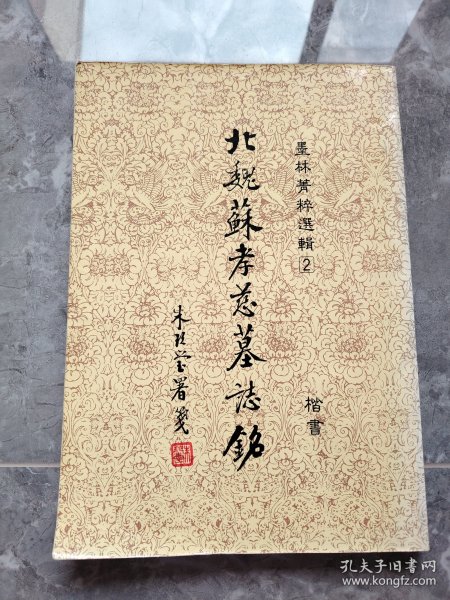 墨林菁粹選輯2
楷書
北魏蘇孝慈墓誌銘
朱玖瑩署箋
孔夫子旧书网
www.kongfz.com